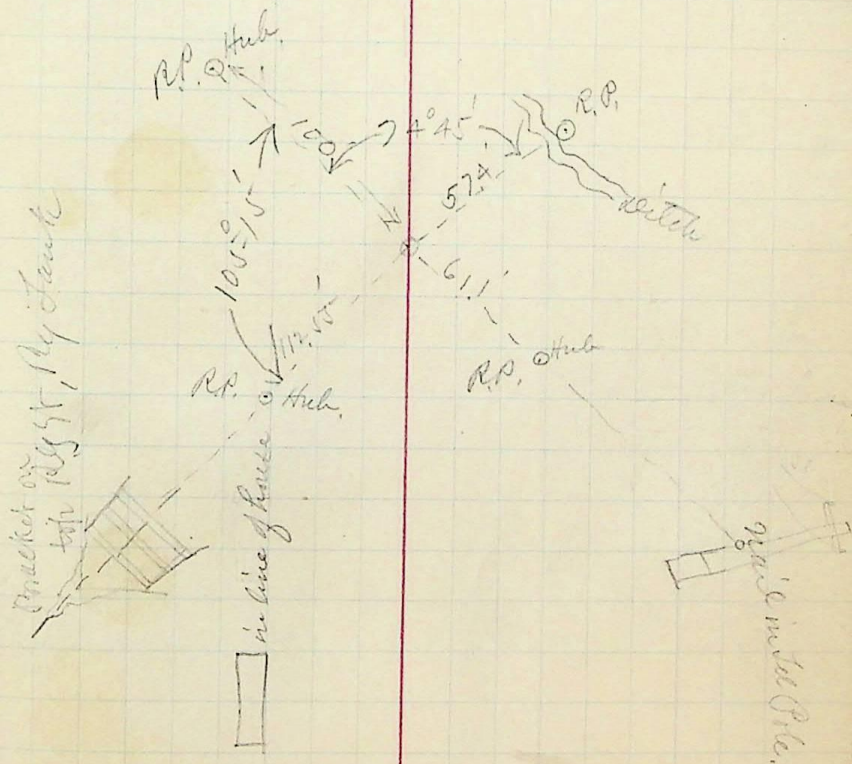 R.P. Hub.
R.P.
74°45'
57.4'
Ditch
105°15'
61.1'
112.55'
R.P. Hub
R.P. Hub.
Bracket on
top Ry Tank
in line of house
Nail in Tel Pole.